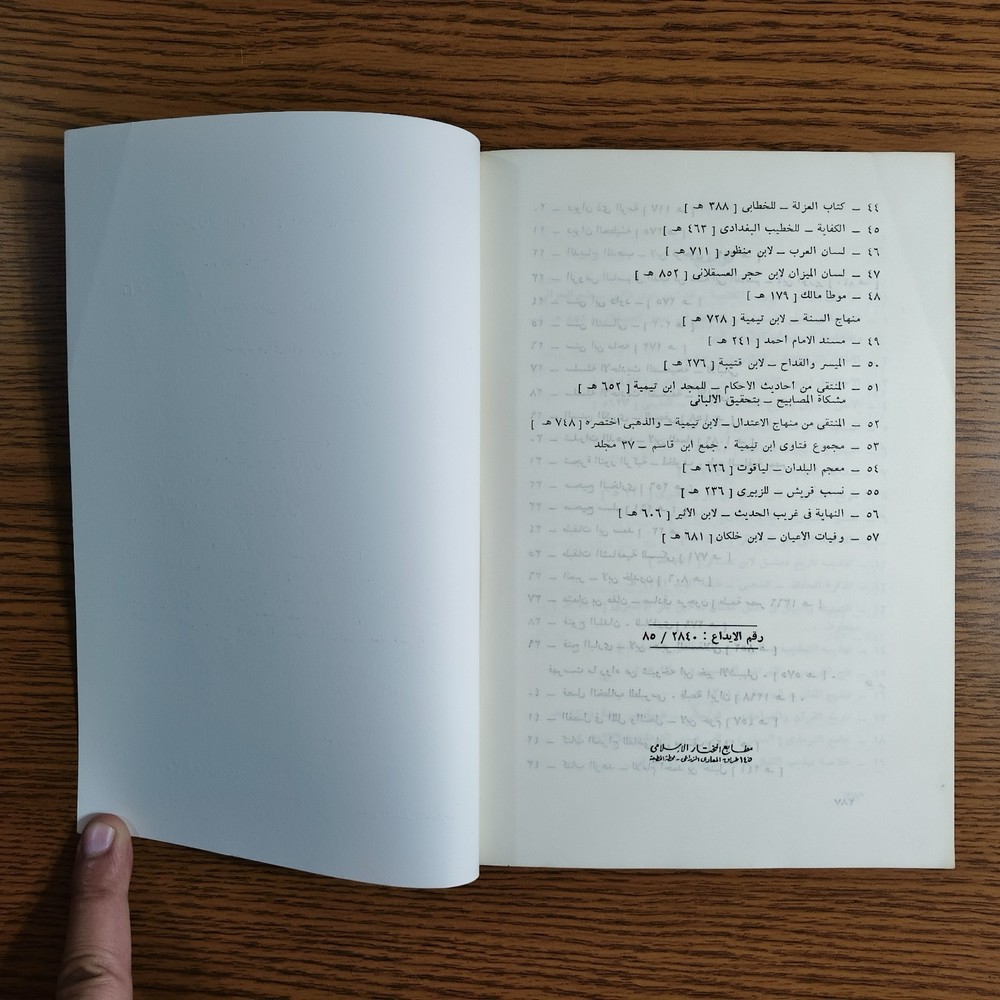 ٤٤ ــ كتاب العزلة ــ للخطابى [ ٣٨٨ هـ ]
٤٥ ــ الكفاية ــ للخطيب البغدادى [ ٤٦٣ هـ ]
٤٦ ــ لسان العرب ــ لابن منظور [ ٧١١ هـ ]
٤٧ ــ لسان الميزان لابن حجر العسقلانى [ ٨٥٢ هـ ]
٤٨ ــ موطا مالك [ ١٧٩ هـ ]
منهاج السنة ــ لابن تيمية [ ٧٢٨ هـ ]
٤٩ ــ مسند الامام أحمد [ ٢٤١ هـ ]
٥٠ ــ الميسر والقداح ــ لابن قتيبة [ ٢٧٦ هـ ]
٥١ ــ المنتقى من أحاديث الاحكام ــ للمجد ابن تيمية [ ٦٥٢ هـ ]
مشكاة المصابيح ــ بتحقيق الالبانى
٥٢ ــ المنتقى من منهاج الاعتدال ــ لابن تيمية ــ والذهبى اختصره [ ٧٤٨ هـ ]
٥٣ ــ مجموع فتاوى ابن تيمية . جمع ابن قاسم ــ ٣٧ مجلد
٥٤ ــ معجم البلدان ــ لياقوت [ ٦٢٦ هـ ]
٥٥ ــ نسب قريش ــ للزبيرى [ ٢٣٦ هـ ]
٥٦ ــ النهاية فى غريب الحديث ــ لابن الاثير [ ٦٠٦ هـ ]
٥٧ ــ وفيات الاعيان ــ لابن خلكان [ ٦٨١ هـ ]
رقم الايداع : ٢٨٤٠ / ٨٥
مطابع المختار الإسلامى